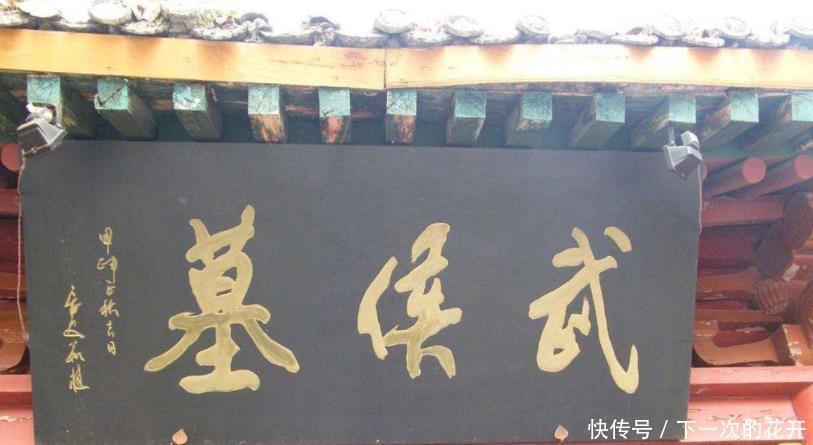 武侯墓
甲申秋吉日
快传号 / 下一次的花开